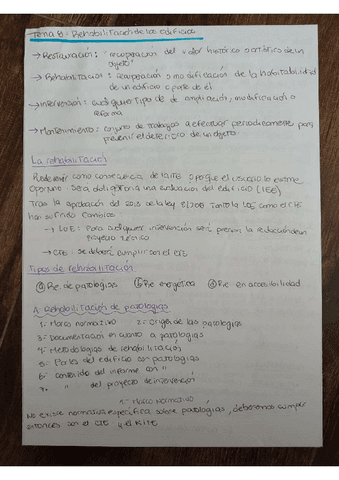 Tema 8: Rehabilitación de los edificios
→ Restauración: recuperación del valor histórico o artístico de un
objeto
→ Rehabilitación: recuperación o modificación de la habitabilidad
de un edificio o parte de él
→ Intervención: cualquier tipo de de ampliación, modificación o
reforma
→ Mantenimiento: conjunto de trabajos a efectuar periódicamente para
prevenir el deterioro de un objeto
La rehabilitación
Puede venir como consecuencia de la ITE o porque el usuario lo estime
oportuno. Será obligatoria una evaluación del edificio (IEE)
Tras la aprobación del 2013 de la ley 8/2013 tanto la LOE como el CTE
han sufrido cambios
→ LOE: Para cualquier intervención será precisa la redacción de un
proyecto técnico
→ CTE: Se deberá cumplir con el CTE
Tipos de rehabilitación
A Re. de patologías B Re. energética C Re. en accesibilidad
A. Rehabilitación de patologías
1- Marco normativo 2- Origen de las patologías
3- Documentación en cuanto a patologías
4- Metodologías de rehabilitación
5- Partes del edificio con patologías
6- Contenido del informe con "
7- " del proyecto de intervención
1- Marco Normativo
No existe normativa específica sobre patologías, deberemos cumplir
entonces con el CTE y el RITE